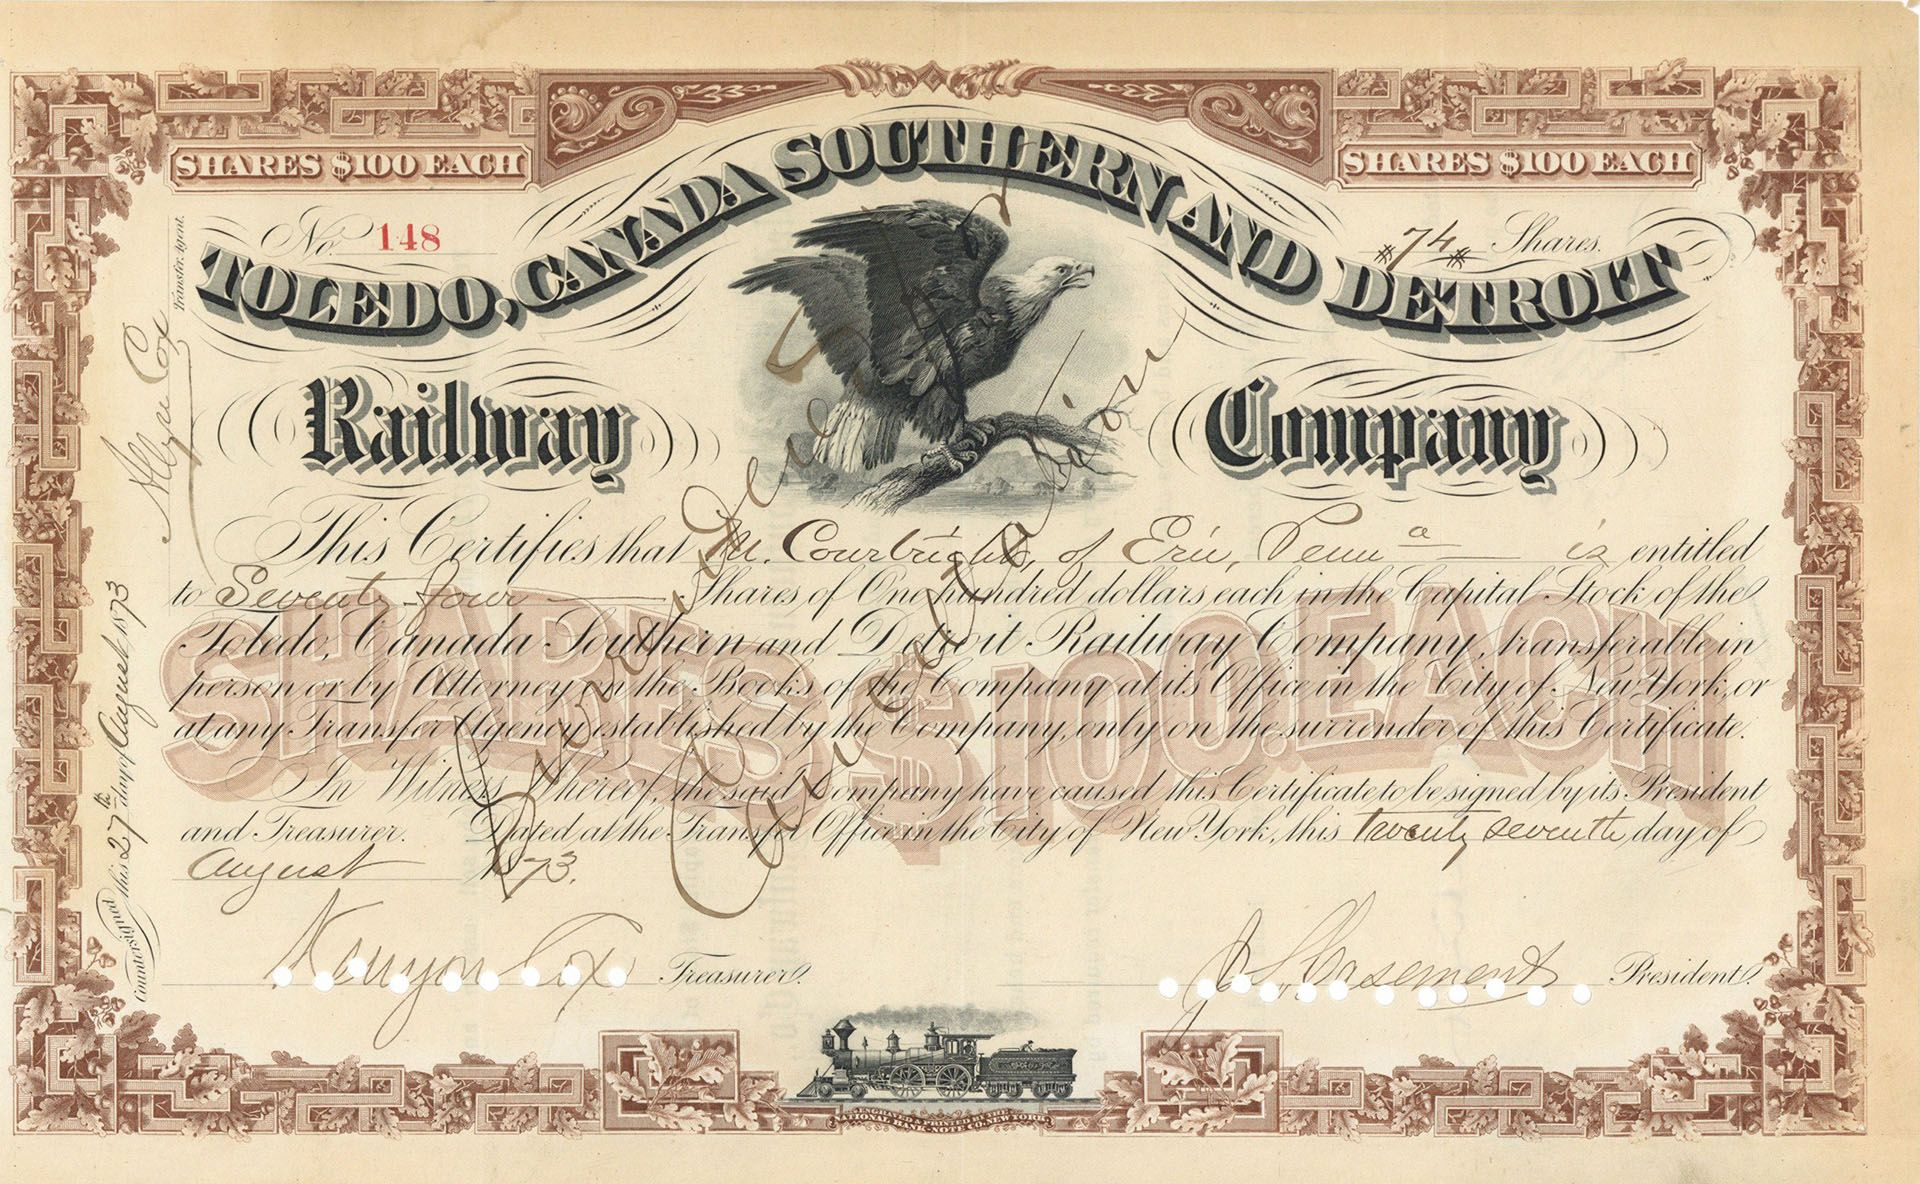 SHARES $100 EACH
SHARES $100 EACH
No. 148
74 Shares.
TOLEDO, CANADA SOUTHERN AND DETROIT
Railway Company
This Certifies that M. Courtright, of Erie, Penna is entitled
to Seventy-four Shares of One hundred dollars each in the Capital Stock of the
Toledo, Canada Southern and Detroit Railway Company, transferable in
person or by Attorney on the Books of the Company at its Office in the City of New York, or
at any Transfer Agency established by the Company, only on the surrender of this Certificate.
SHARES $100. EACH
In Witness Whereof, the said Company have caused this Certificate to be signed by its President
and Treasurer. Dated at the Transfer Office in the City of New York, this twenty seventh day of
August 1873.
Kenyon Cox Treasurer.
President.
Countersigned this 27th day of August 1873
Cox
Transfer Agent.
Surrendered
Cancelation
ENGRAVED & PRINTED BY THE
NATIONAL BANK-NOTE CO. NEW YORK.